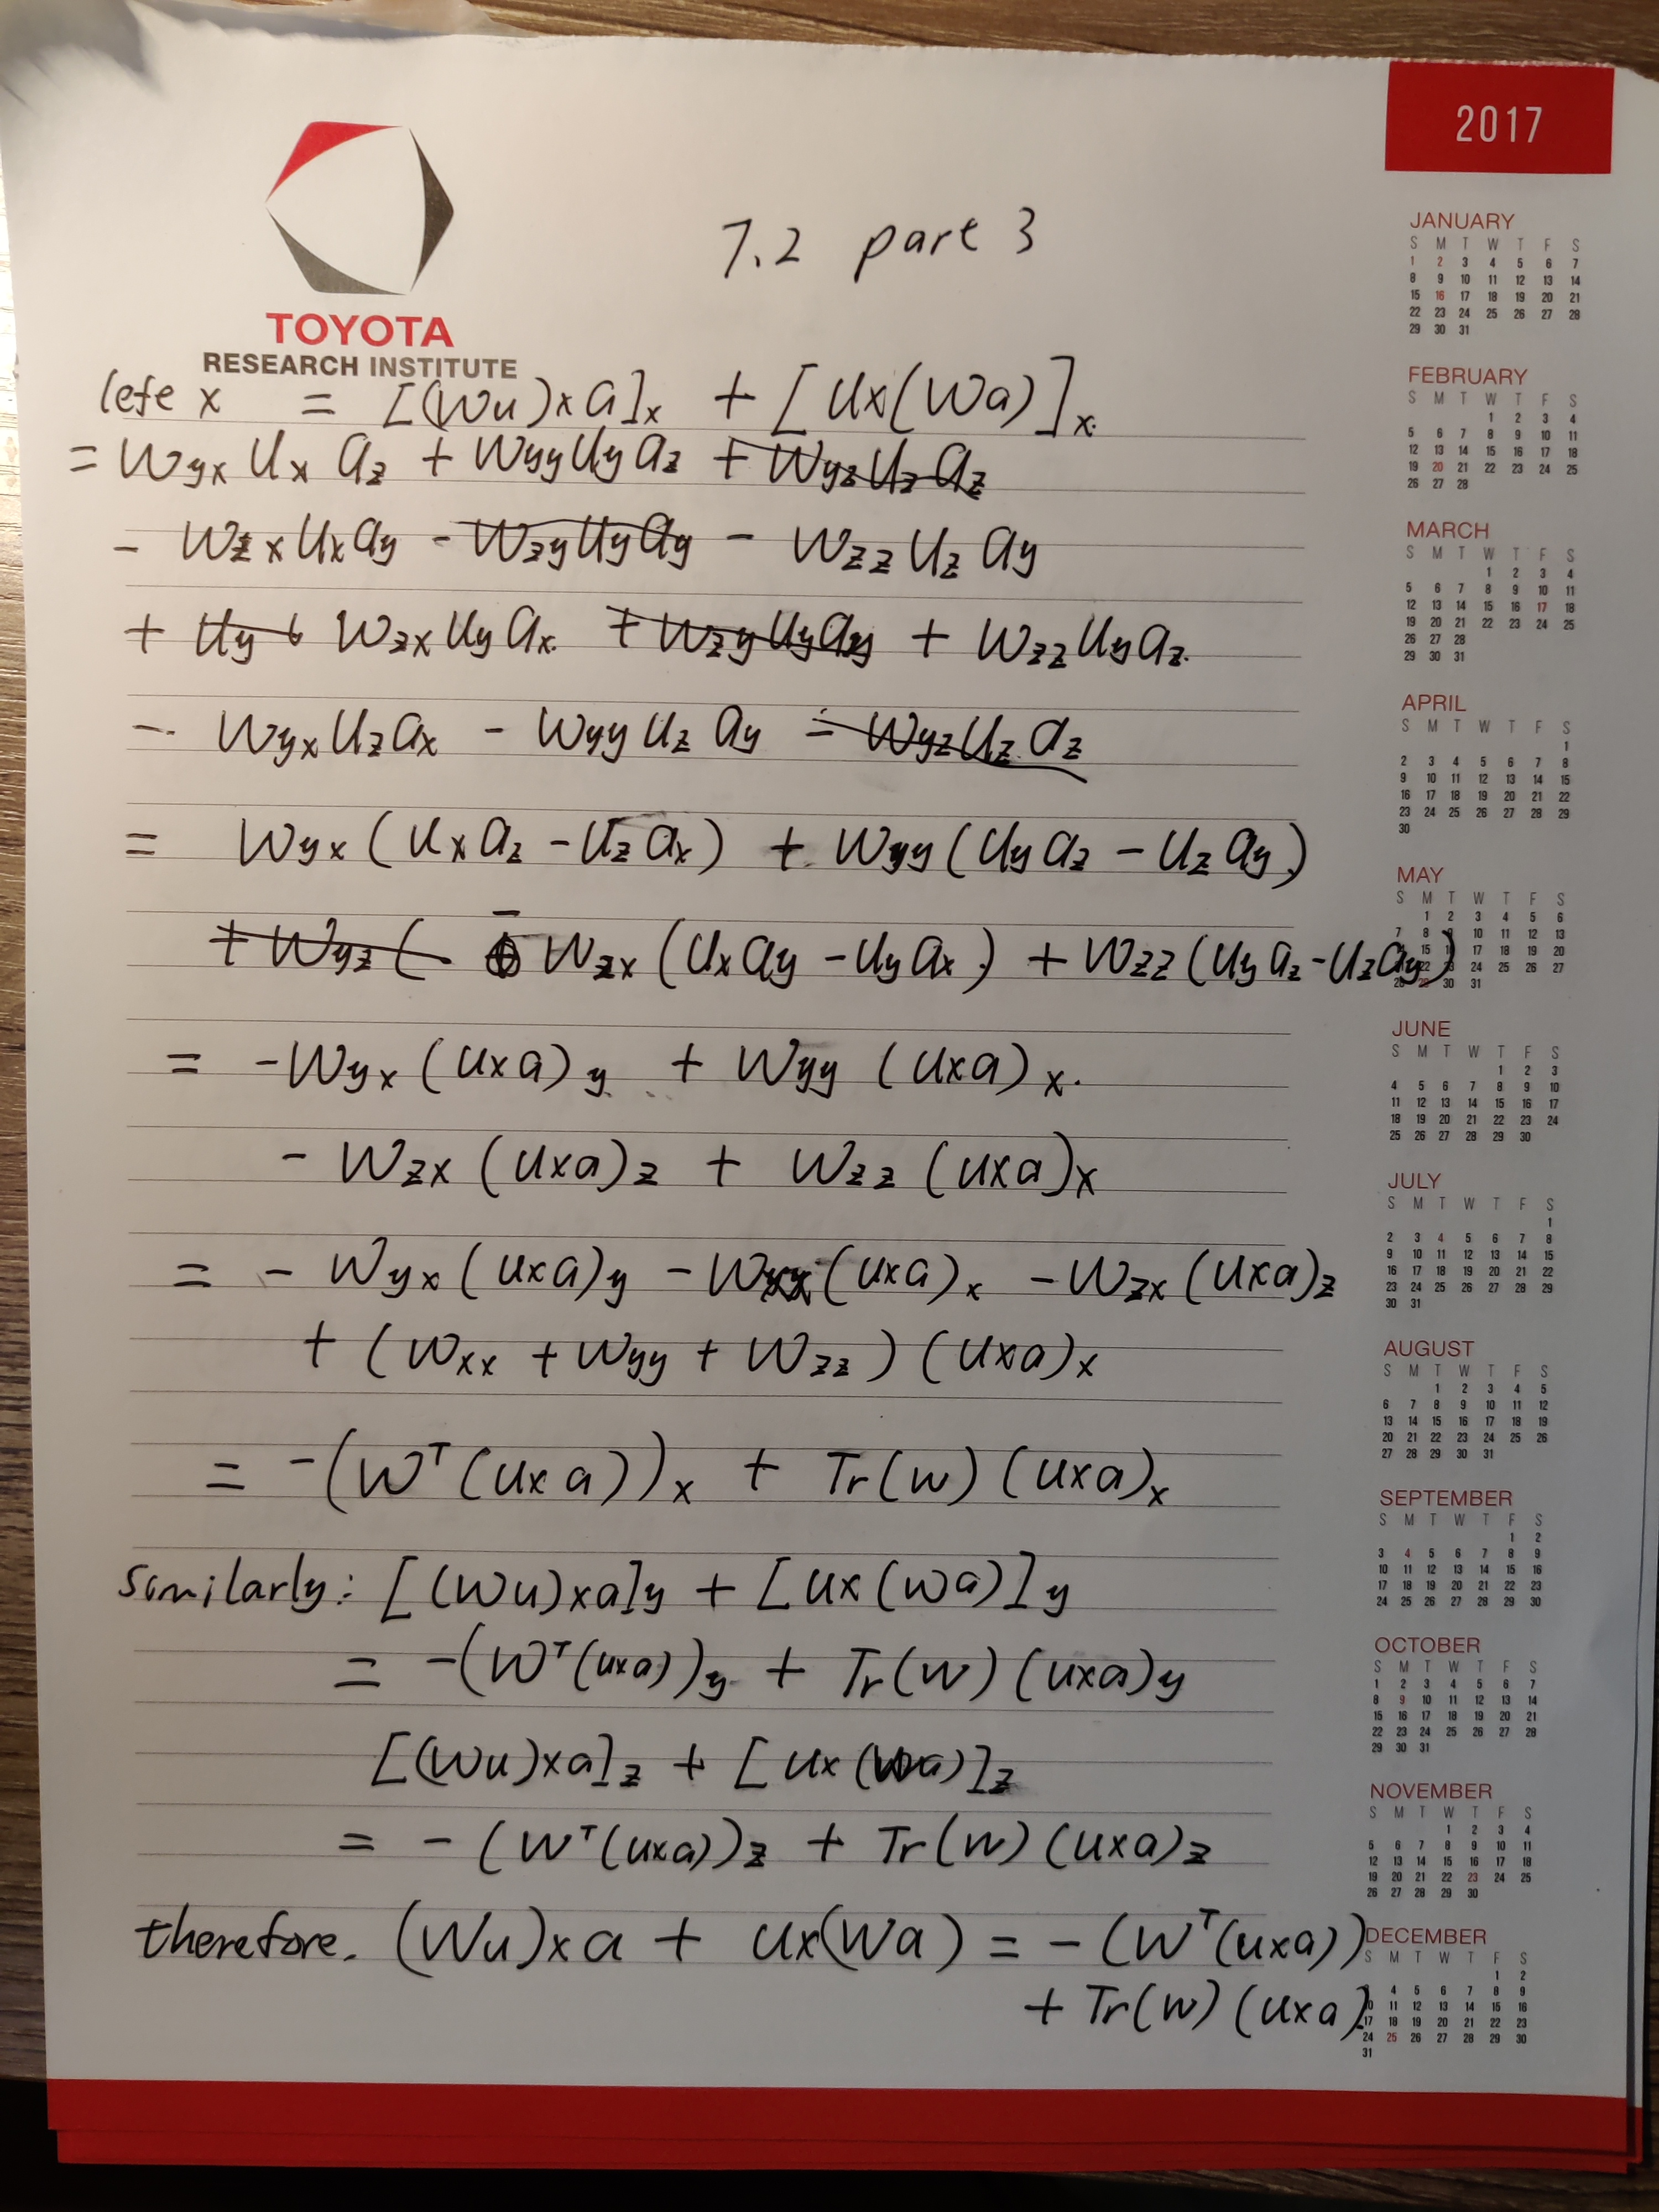 2017
7.2 part 3
TOYOTA
RESEARCH INSTITUTE
lefe x = [(Wu)×a]x + [u×(Wa)]x.
= Wyx Ux az + Wyy Uy az + Wyz Uz az
- Wzx Ux ay - Wzy Uy ay - Wzz Uz ay
+ Uy Wzx Uy ax. + Wzy Uy ay + Wzz Uy az.
- Wyx Uz ax - Wyy Uz ay - Wyz Uz az
= Wyx (Ux az - Uz ax) + Wyy (Uy az - Uz ay)
+ Wyz ( - Wzx (Ux ay - Uy ax) + Wzz (Uy az - Uz ay)
= -Wyx (u×a)y + Wyy (u×a)x.
- Wzx (u×a)z + Wzz (u×a)x
= - Wyx (u×a)y - Wxx (u×a)x - Wzx (u×a)z
+ (Wxx + Wyy + Wzz) (u×a)x
= -(W^T (u×a))x + Tr(w) (u×a)x
similarly: [(Wu)×a]y + [u×(wa)]y
= -(W^T(u×a))y + Tr(w) (u×a)y
[(Wu)×a]z + [u×(Wa)]z
= - (W^T(u×a))z + Tr(w) (u×a)z
therefore. (Wu)×a + u×(Wa) = - (W^T(u×a))
+ Tr(w) (u×a).
JANUARY
S M T W T F S
1 2 3 4 5 6 7
8 9 10 11 12 13 14
15 16 17 18 19 20 21
22 23 24 25 26 27 28
29 30 31
FEBRUARY
S M T W T F S
1 2 3 4
5 6 7 8 9 10 11
12 13 14 15 16 17 18
19 20 21 22 23 24 25
26 27 28
MARCH
S M T W T F S
1 2 3 4
5 6 7 8 9 10 11
12 13 14 15 16 17 18
19 20 21 22 23 24 25
26 27 28 29 30 31
APRIL
S M T W T F S
1
2 3 4 5 6 7 8
9 10 11 12 13 14 15
16 17 18 19 20 21 22
23 24 25 26 27 28 29
30
MAY
S M T W T F S
1 2 3 4 5 6
7 8 10 11 12 13
15 16 17 18 19 20
22 23 24 25 26 27
30 31
JUNE
S M T W T F S
1 2 3
4 5 6 7 8 9 10
11 12 13 14 15 16 17
18 19 20 21 22 23 24
25 26 27 28 29 30
JULY
S M T W T F S
1
2 3 4 5 6 7 8
9 10 11 12 13 14 15
16 17 18 19 20 21 22
23 24 25 26 27 28 29
30 31
AUGUST
S M T W T F S
1 2 3 4 5
6 7 8 9 10 11 12
13 14 15 16 17 18 19
20 21 22 23 24 25 26
27 28 29 30 31
SEPTEMBER
S M T W T F S
1 2
3 4 5 6 7 8 9
10 11 12 13 14 15 16
17 18 19 20 21 22 23
24 25 26 27 28 29 30
OCTOBER
S M T W T F S
1 2 3 4 5 6 7
8 9 10 11 12 13 14
15 16 17 18 19 20 21
22 23 24 25 26 27 28
29 30 31
NOVEMBER
S M T W T F S
1 2 3 4
5 6 7 8 9 10 11
12 13 14 15 16 17 18
19 20 21 22 23 24 25
26 27 28 29 30
DECEMBER
S M T W T F S
1 2
4 5 6 7 8 9
11 12 13 14 15 16
17 18 19 20 21 22 23
24 25 26 27 28 29 30
31